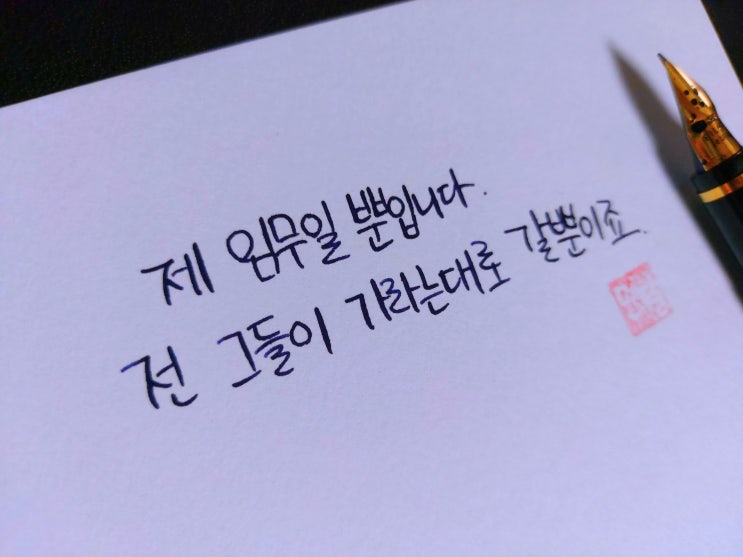 제 임무일 뿐입니다.
전 그들이 가라는대로 갈뿐이죠.